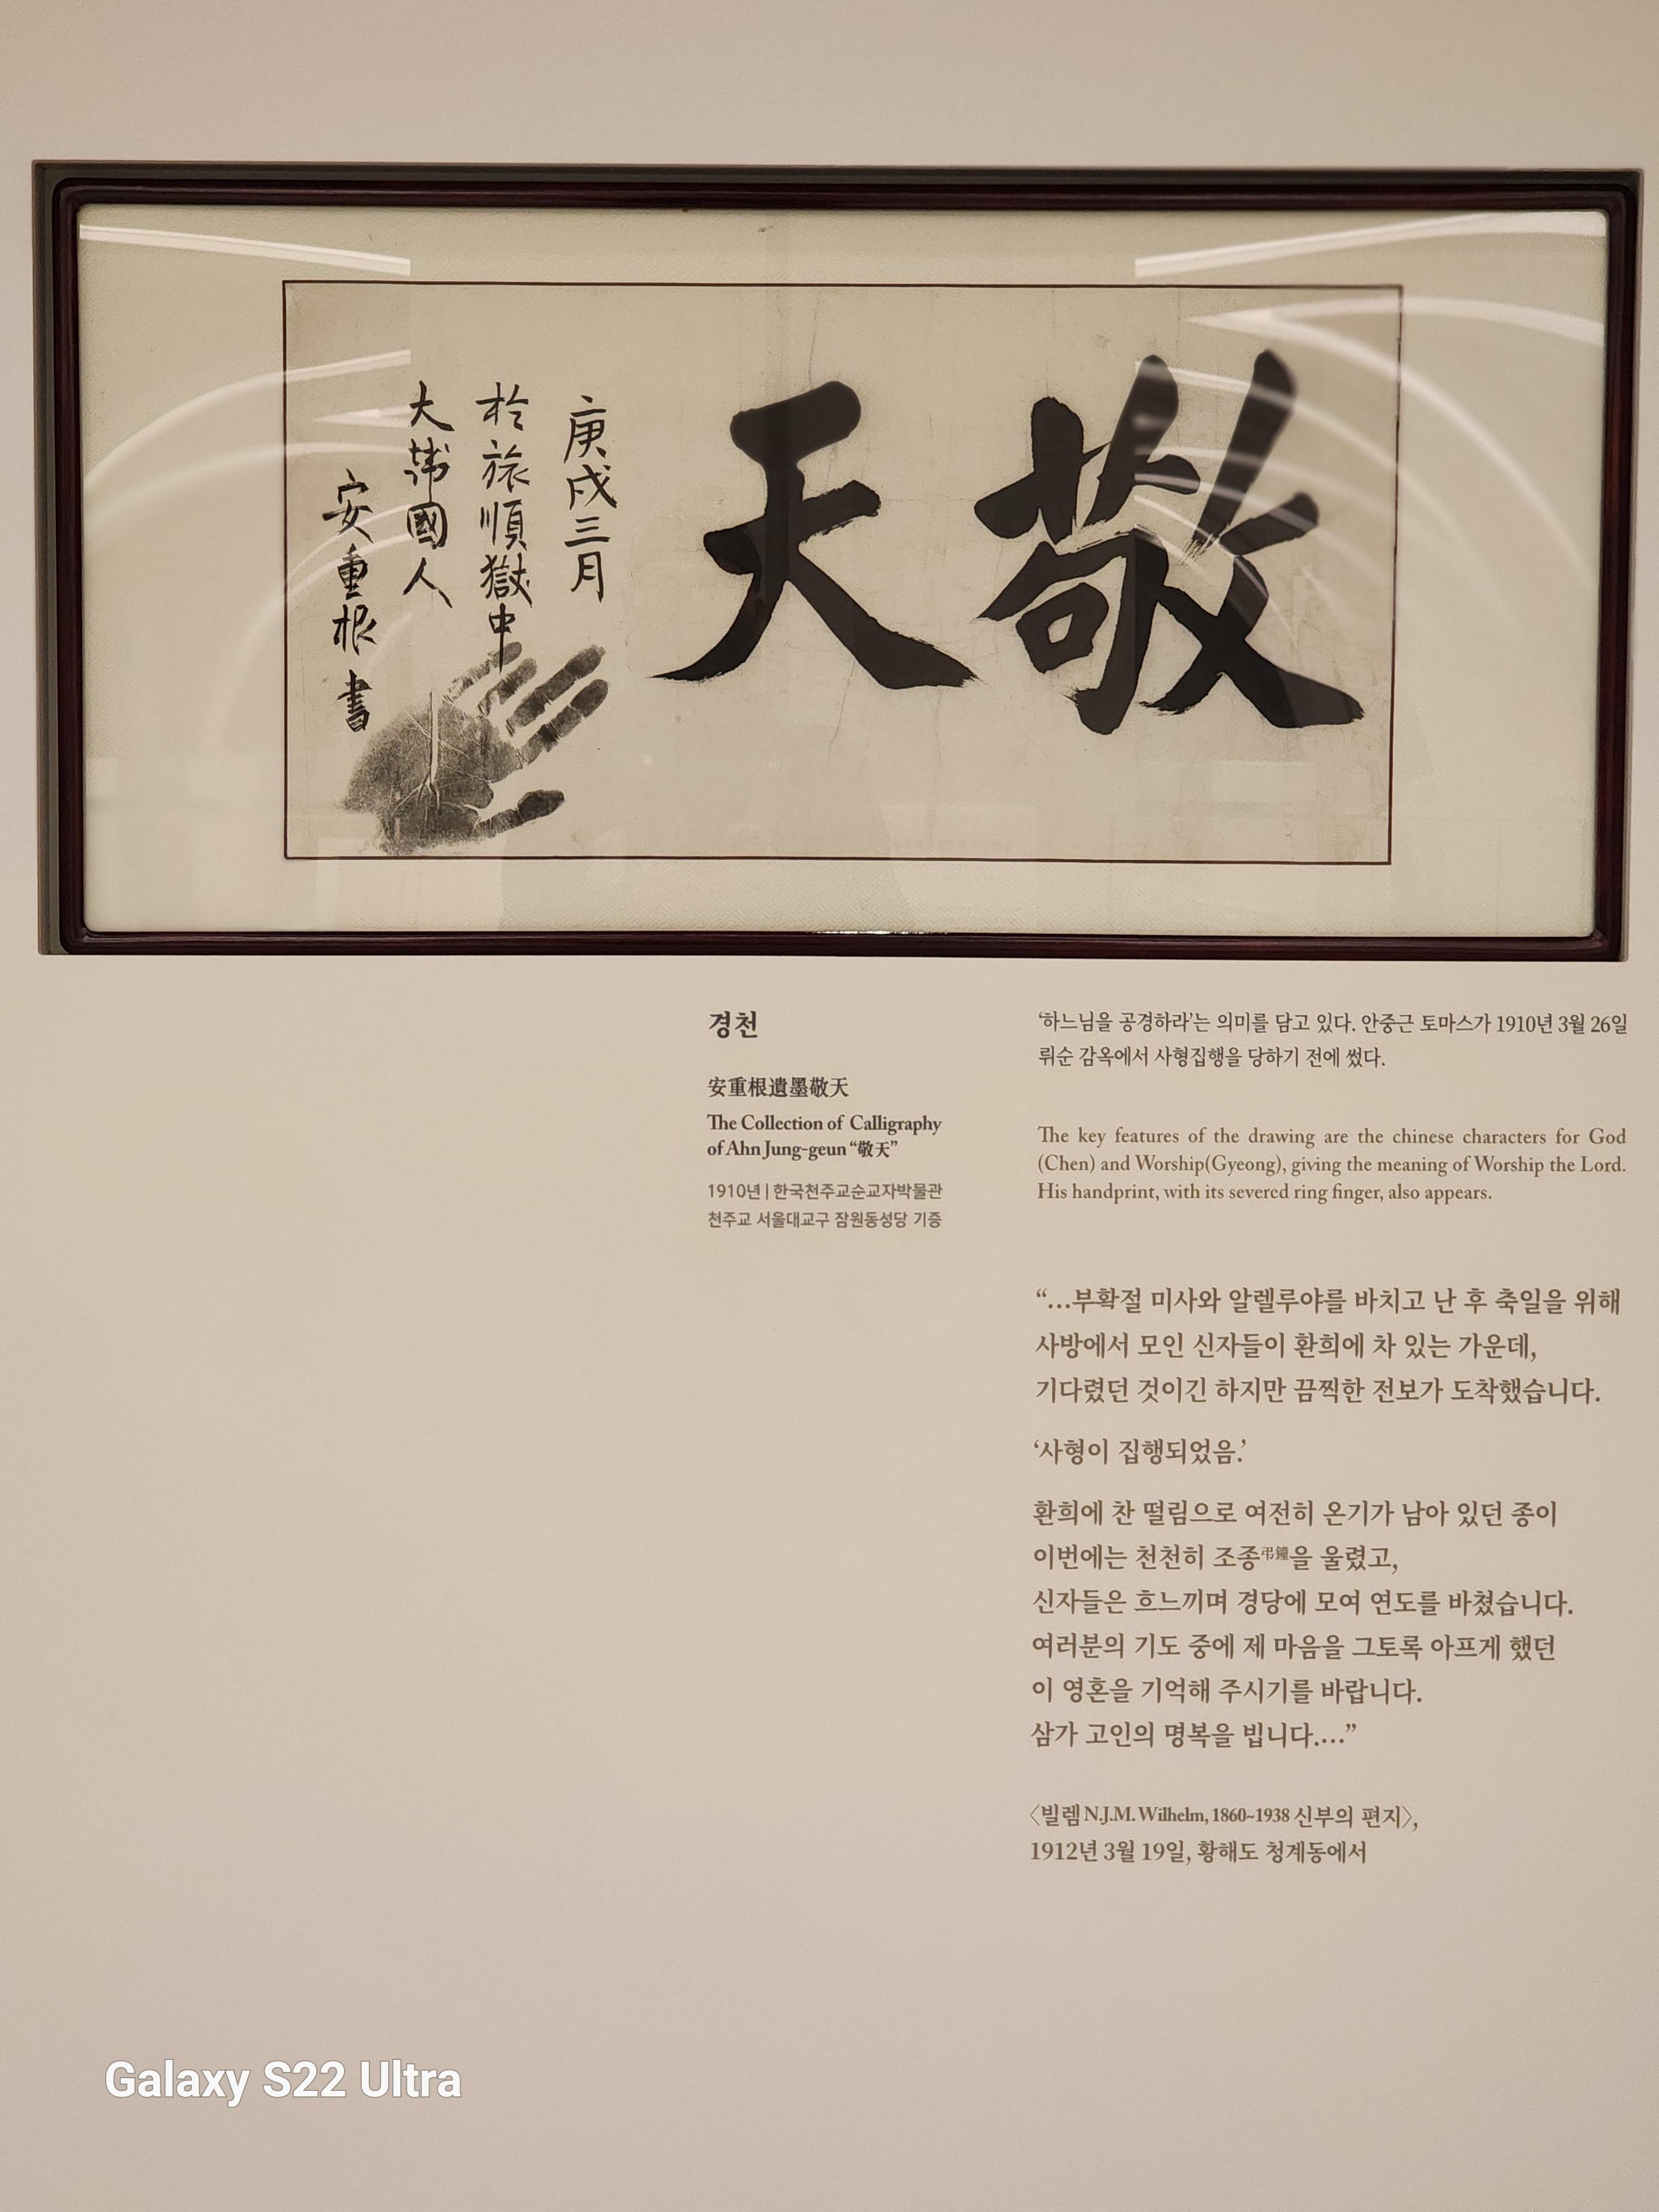 敬天
庚戌三月
於旅順獄中
大韓國人
安重根書
경천
安重根遺墨敬天
The Collection of Calligraphy
of Ahn Jung-geun “敬天”
1910년 | 한국천주교순교자박물관
천주교 서울대교구 잠원동성당 기증
‘하느님을 공경하라’는 의미를 담고 있다. 안중근 토마스가 1910년 3월 26일
뤼순 감옥에서 사형집행을 당하기 전에 썼다.
The key features of the drawing are the chinese characters for God
(Chen) and Worship(Gyeong), giving the meaning of Worship the Lord.
His handprint, with its severed ring finger, also appears.
“…부확절 미사와 알렐루야를 바치고 난 후 축일을 위해
사방에서 모인 신자들이 환희에 차 있는 가운데,
기다렸던 것이긴 하지만 끔찍한 전보가 도착했습니다.
‘사형이 집행되었음.’
환희에 찬 떨림으로 여전히 온기가 남아 있던 종이
이번에는 천천히 조종弔鐘을 울렸고,
신자들은 흐느끼며 경당에 모여 연도를 바쳤습니다.
여러분의 기도 중에 제 마음을 그토록 아프게 했던
이 영혼을 기억해 주시기를 바랍니다.
삼가 고인의 명복을 빕니다.…”
〈빌렘 N.J.M. Wilhelm, 1860~1938 신부의 편지〉,
1912년 3월 19일, 황해도 청계동에서
Galaxy S22 Ultra